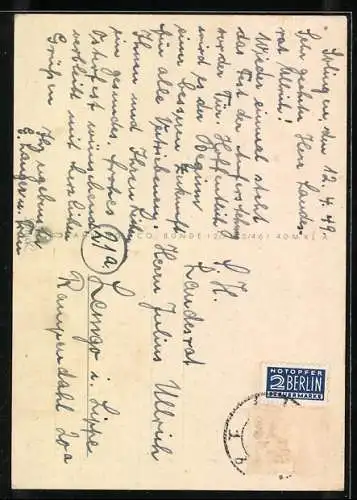 Solingen, den 12. 4. 49
Sehr geehrter Herr Landes-
rat Ullrich!
Wieder einmal steht
das Fest der Auferstehung
vor der Tür. Hoffentlich
wird es der Beginn
einer besseren Zukunft
für alle Vertriebenen.
Ihnen und Ihren Lieben
ein gesundes, frohes
Osterfest wünschend
verbleibt mit herzlichen
Grüßen
Ihr ergebener
G. Langer u. Frau
S. H.
Landesrat
Herrn Julius Ullrich
21a Lemgo i. Lippe
Rampendahl 20a
NOTOPFER
2 BERLIN
STEUERMARKE